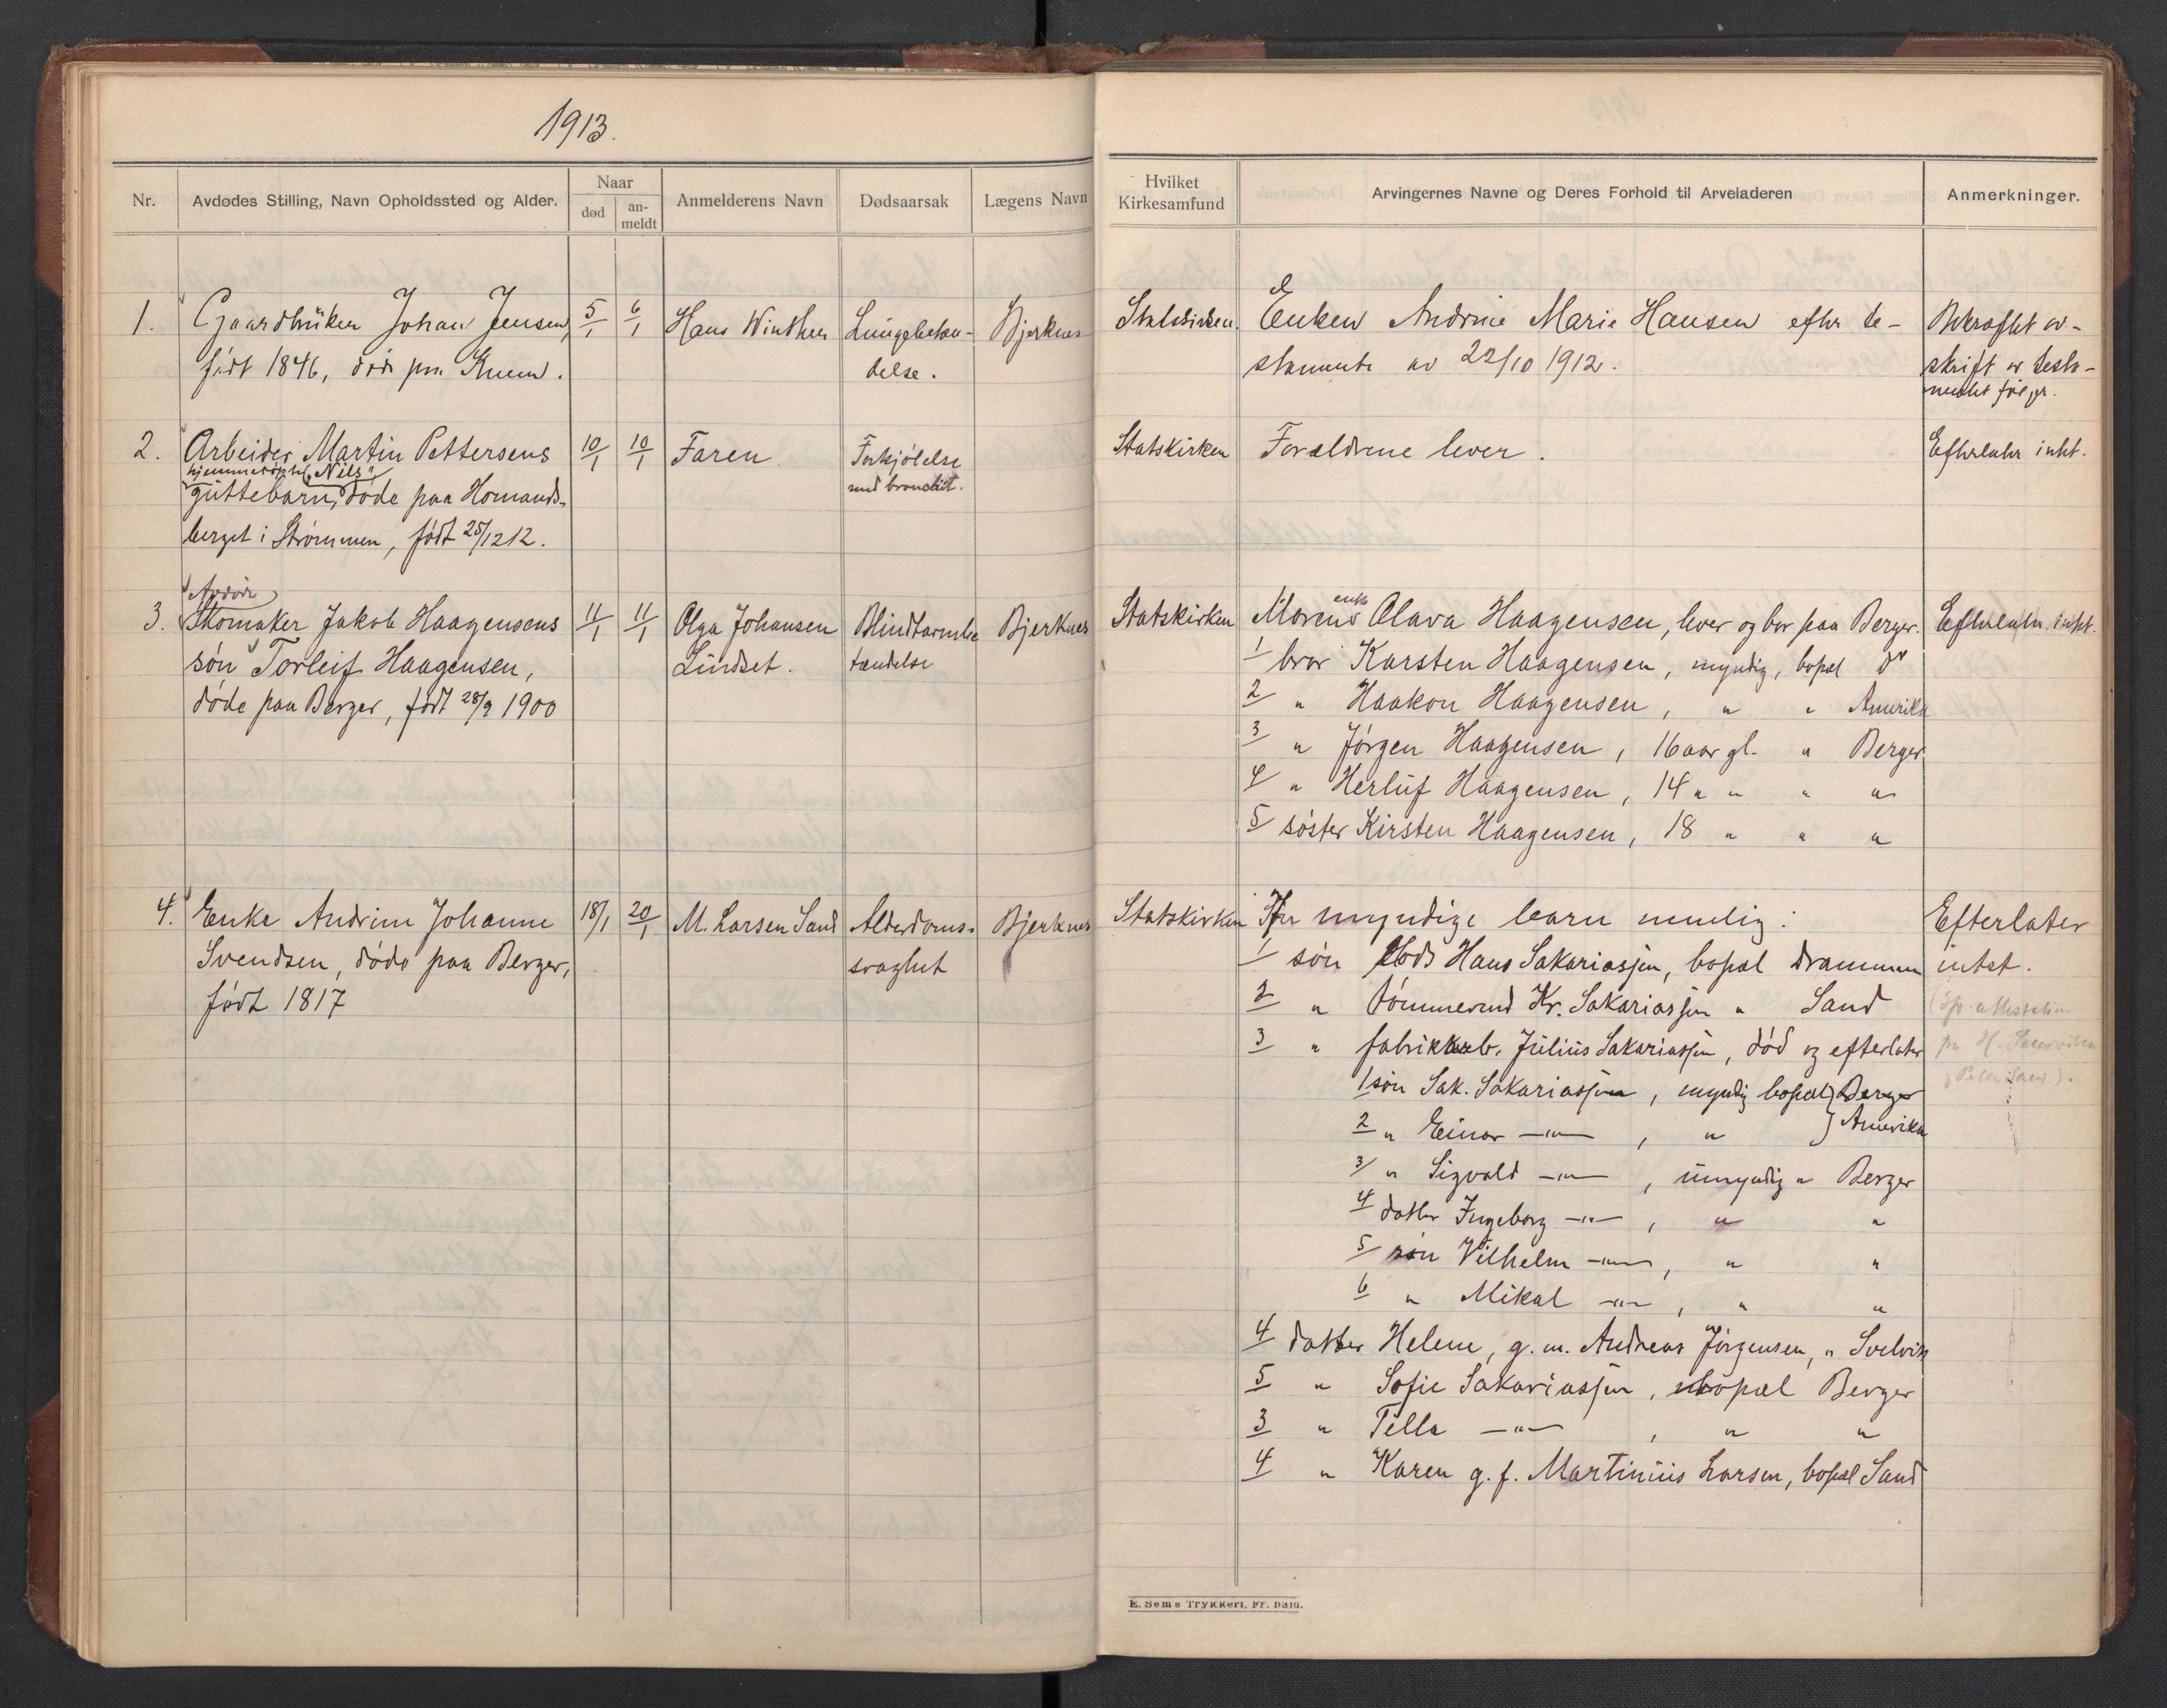 1913.
Nr.
Avdødes Stilling, Navn Opholdssted og Alder.
Naar
død
an-
meldt
Anmelderens Navn
Dødsaarsak
Lægens Navn
Hvilket
Kirkesamfund
Arvingernes Navne og Deres Forhold til Arveladeren
Anmerkninger.
1. Gaardbruker Johan Jensen, 5/1 6/1 Hans Winther Lungebeten- Bjerknes Statskirken. Enken Andrine Marie Hansen efter te- Bekræftet av-
født 1846, død paa Knem. delse. stamente av 22/10 1912. skrift av testa-
mentet følger.
2. Arbeider Martin Pettersens 10/1 10/1 Faren Forkjølelse Statskirken Forældrene lever. Efterlater intet.
hjemmedøpt „Nils"
guttebarn, døde paa Homands- med bronchit.
berget i Strømmen, født 25/12 12.
Avdøde
3. Skomaker Jakob Haagensens 11/1 11/1 Olga Johansen Blindtarmbe Bjerknes Statskirken Moren enke Olava Haagensen, lever og bor paa Berger. Efterlater intet.
søn Torleif Haagensen, Lindset. tændelse 1 bror Karsten Haagensen, myndig, bopæl do
døde paa Berger, født 28/9 1900 2 " Haakon Haagensen, " " Amerika
3 " Jørgen Haagensen, 16 aar gl. " Berger
4 " Herluf Haagensen, 14 " " " "
5 søster Kirsten Haagensen, 18 " " "
4. Enke Andrine Johanne 18/1 20/1 M. Larsen Sand Alderdoms- Bjerknes Statskirken myndige barn nemlig: Efterlater
Svendsen, døde paa Berger, svaghet 1 søn Hans Sakariassen, bopæl Drammen intet.
født 1817 2 " tømmermd Kr. Sakariassen " Sand
3 " fabrikkarb. Julius Sakariassen, død og efterlater
1 søn Sak. Sakariassen, myndig bopæl } Berger
2 " Einar —"— , " } Amerika
3 " Sigvald —"— , umyndig " Berger
4 datter Ingeborg —"— , " "
5 søn Vilhelm —"— , " "
6 " Mikal —"— , " "
4 datter Helene, g. m. Andreas Jørgensen, " Svelvik
5 " Sofie Sakariassen, bopæl Berger
3 " Tella —"— , " "
4 " Karen g. f. Martinius Larsen, bopæl Sand
E. Sems Trykkeri, Fr. hald.